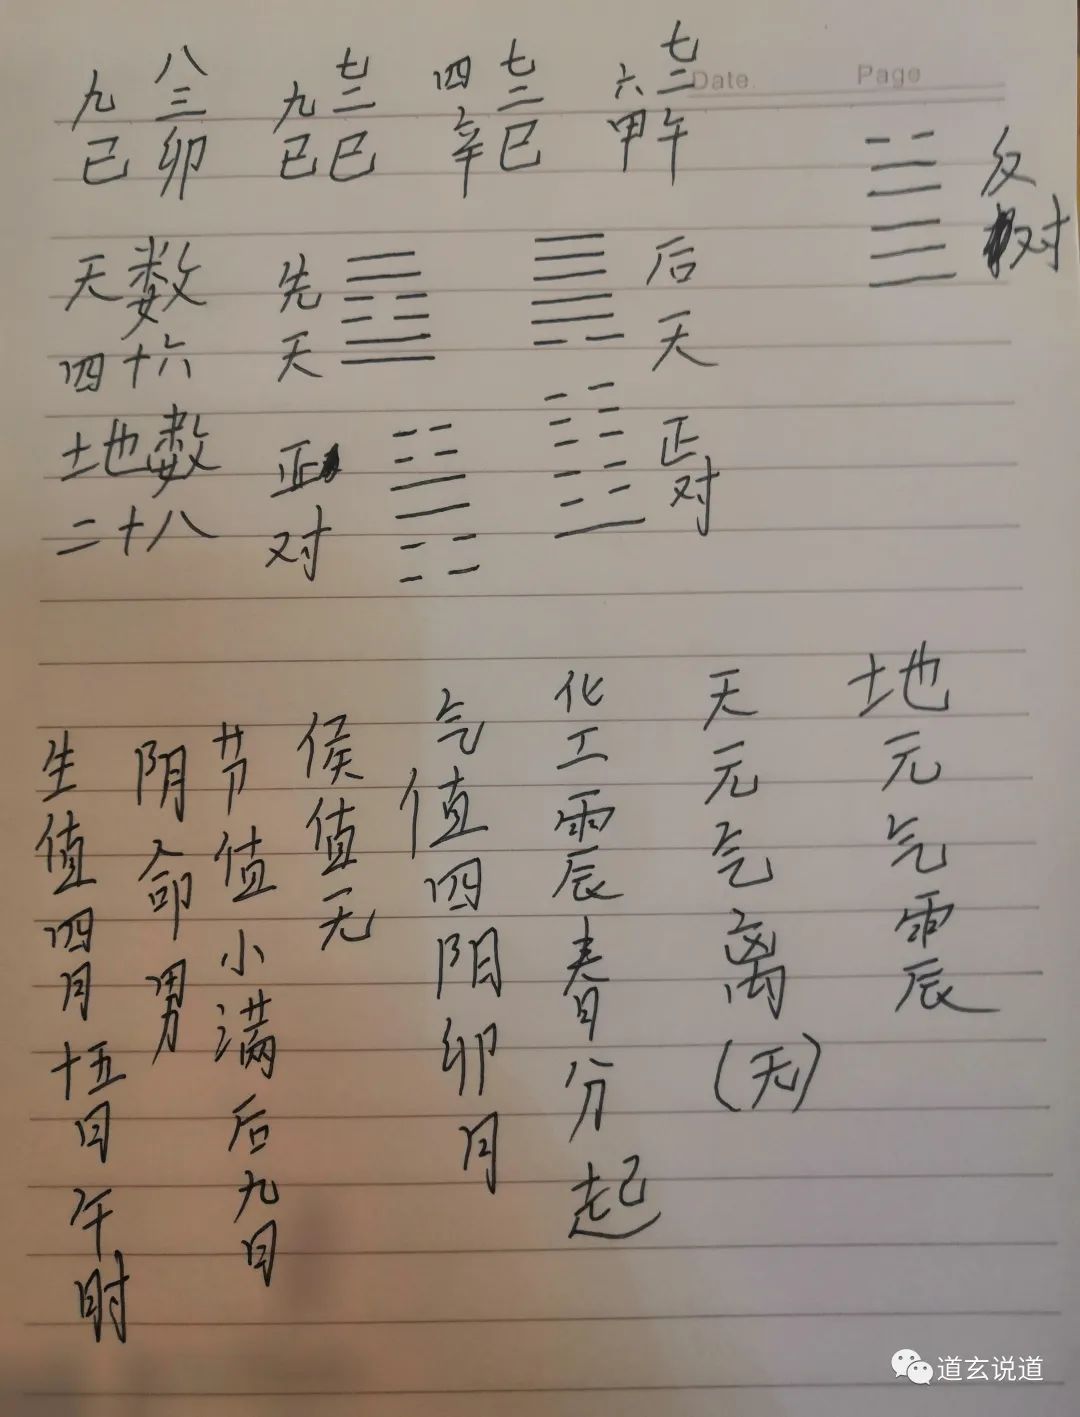 Date.
Page
九 八三 九 七二 四 七二 六 七二
己卯 己巳 辛巳 甲午
反对
天数
四十六
地数
二十八
先天
后天
正对
正对
生值四月十五日午时
阴命男
节值小满后九日
侯值无
气值四阳卯月
化工震春分起
天元气离(无)
地元气震
道玄说道